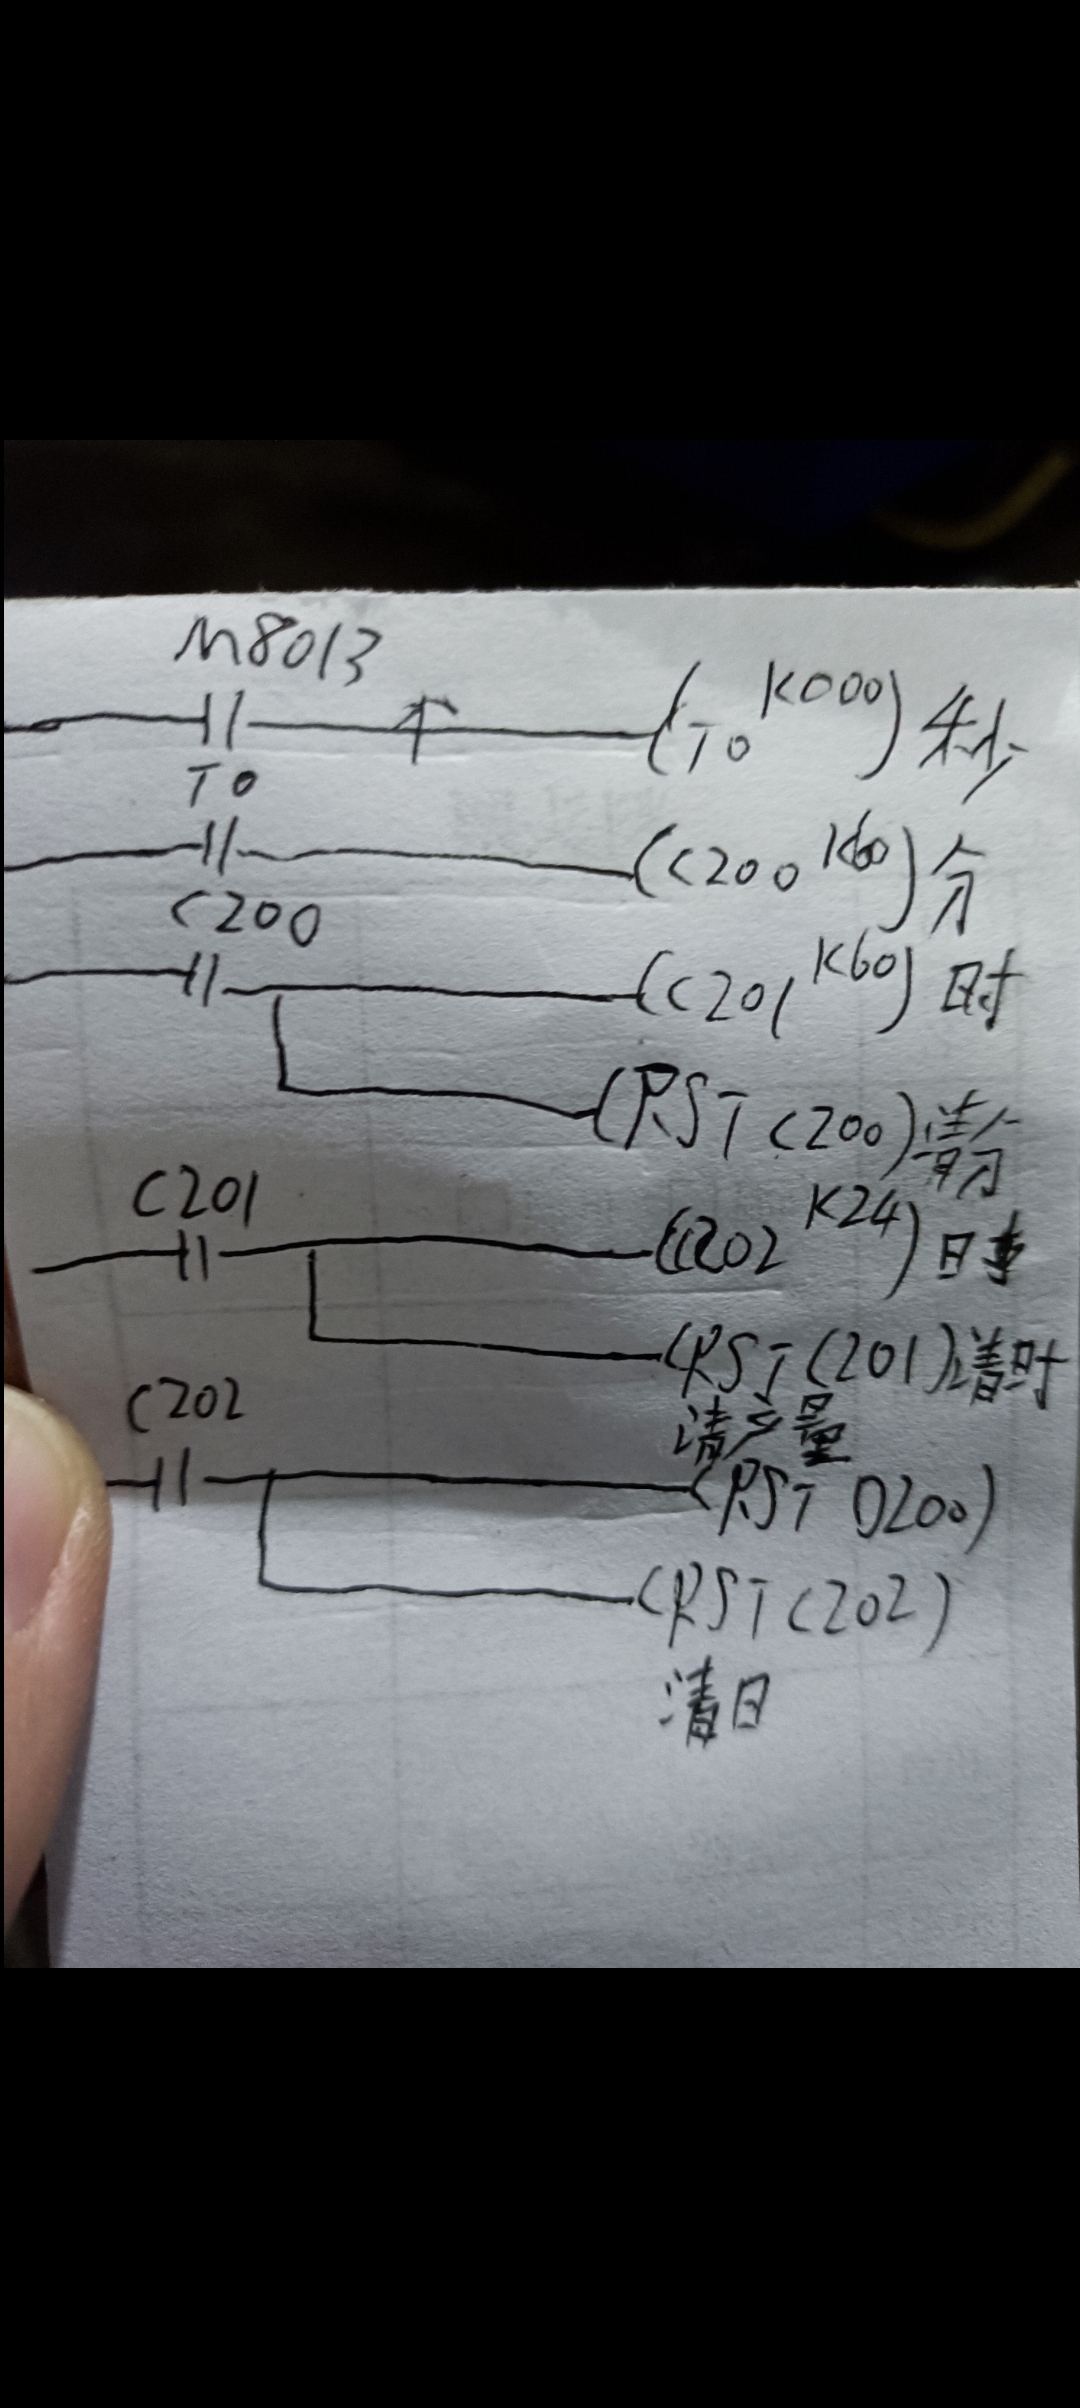 M8013
(T0 K000) 秒
T0
(C200 K60) 分
C200
(C201 K60) 时
(RST C200) 清分
C201
(C202 K24) 日
(RST C201) 清时
C202
清产量
(RST D200)
(RST C202)
清日